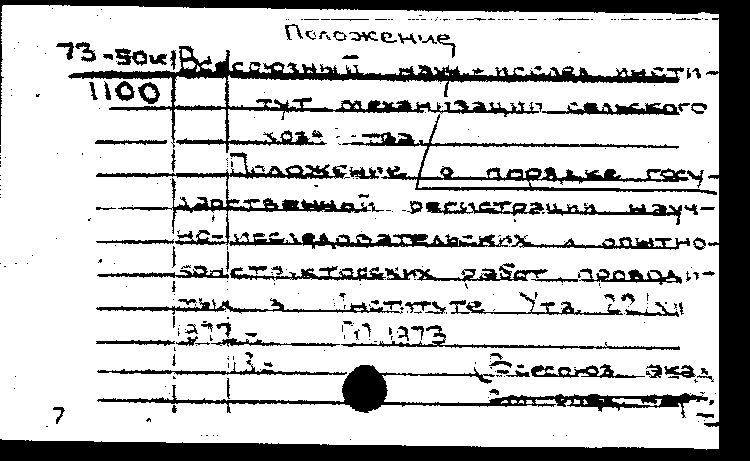 Положение
73-50к Всесоюзный науч.-исслед. инсти-
1100 тут механизации сельского
хозяйства.
Положение о порядке госу-
дарственной регистрации науч-
но-исследовательских и опытно-
конструкторских работ, проводи-
мых в Институте. Утв. 22/XII
1972 г. М. 1973
13 с. (Всесоюз. акад.
7